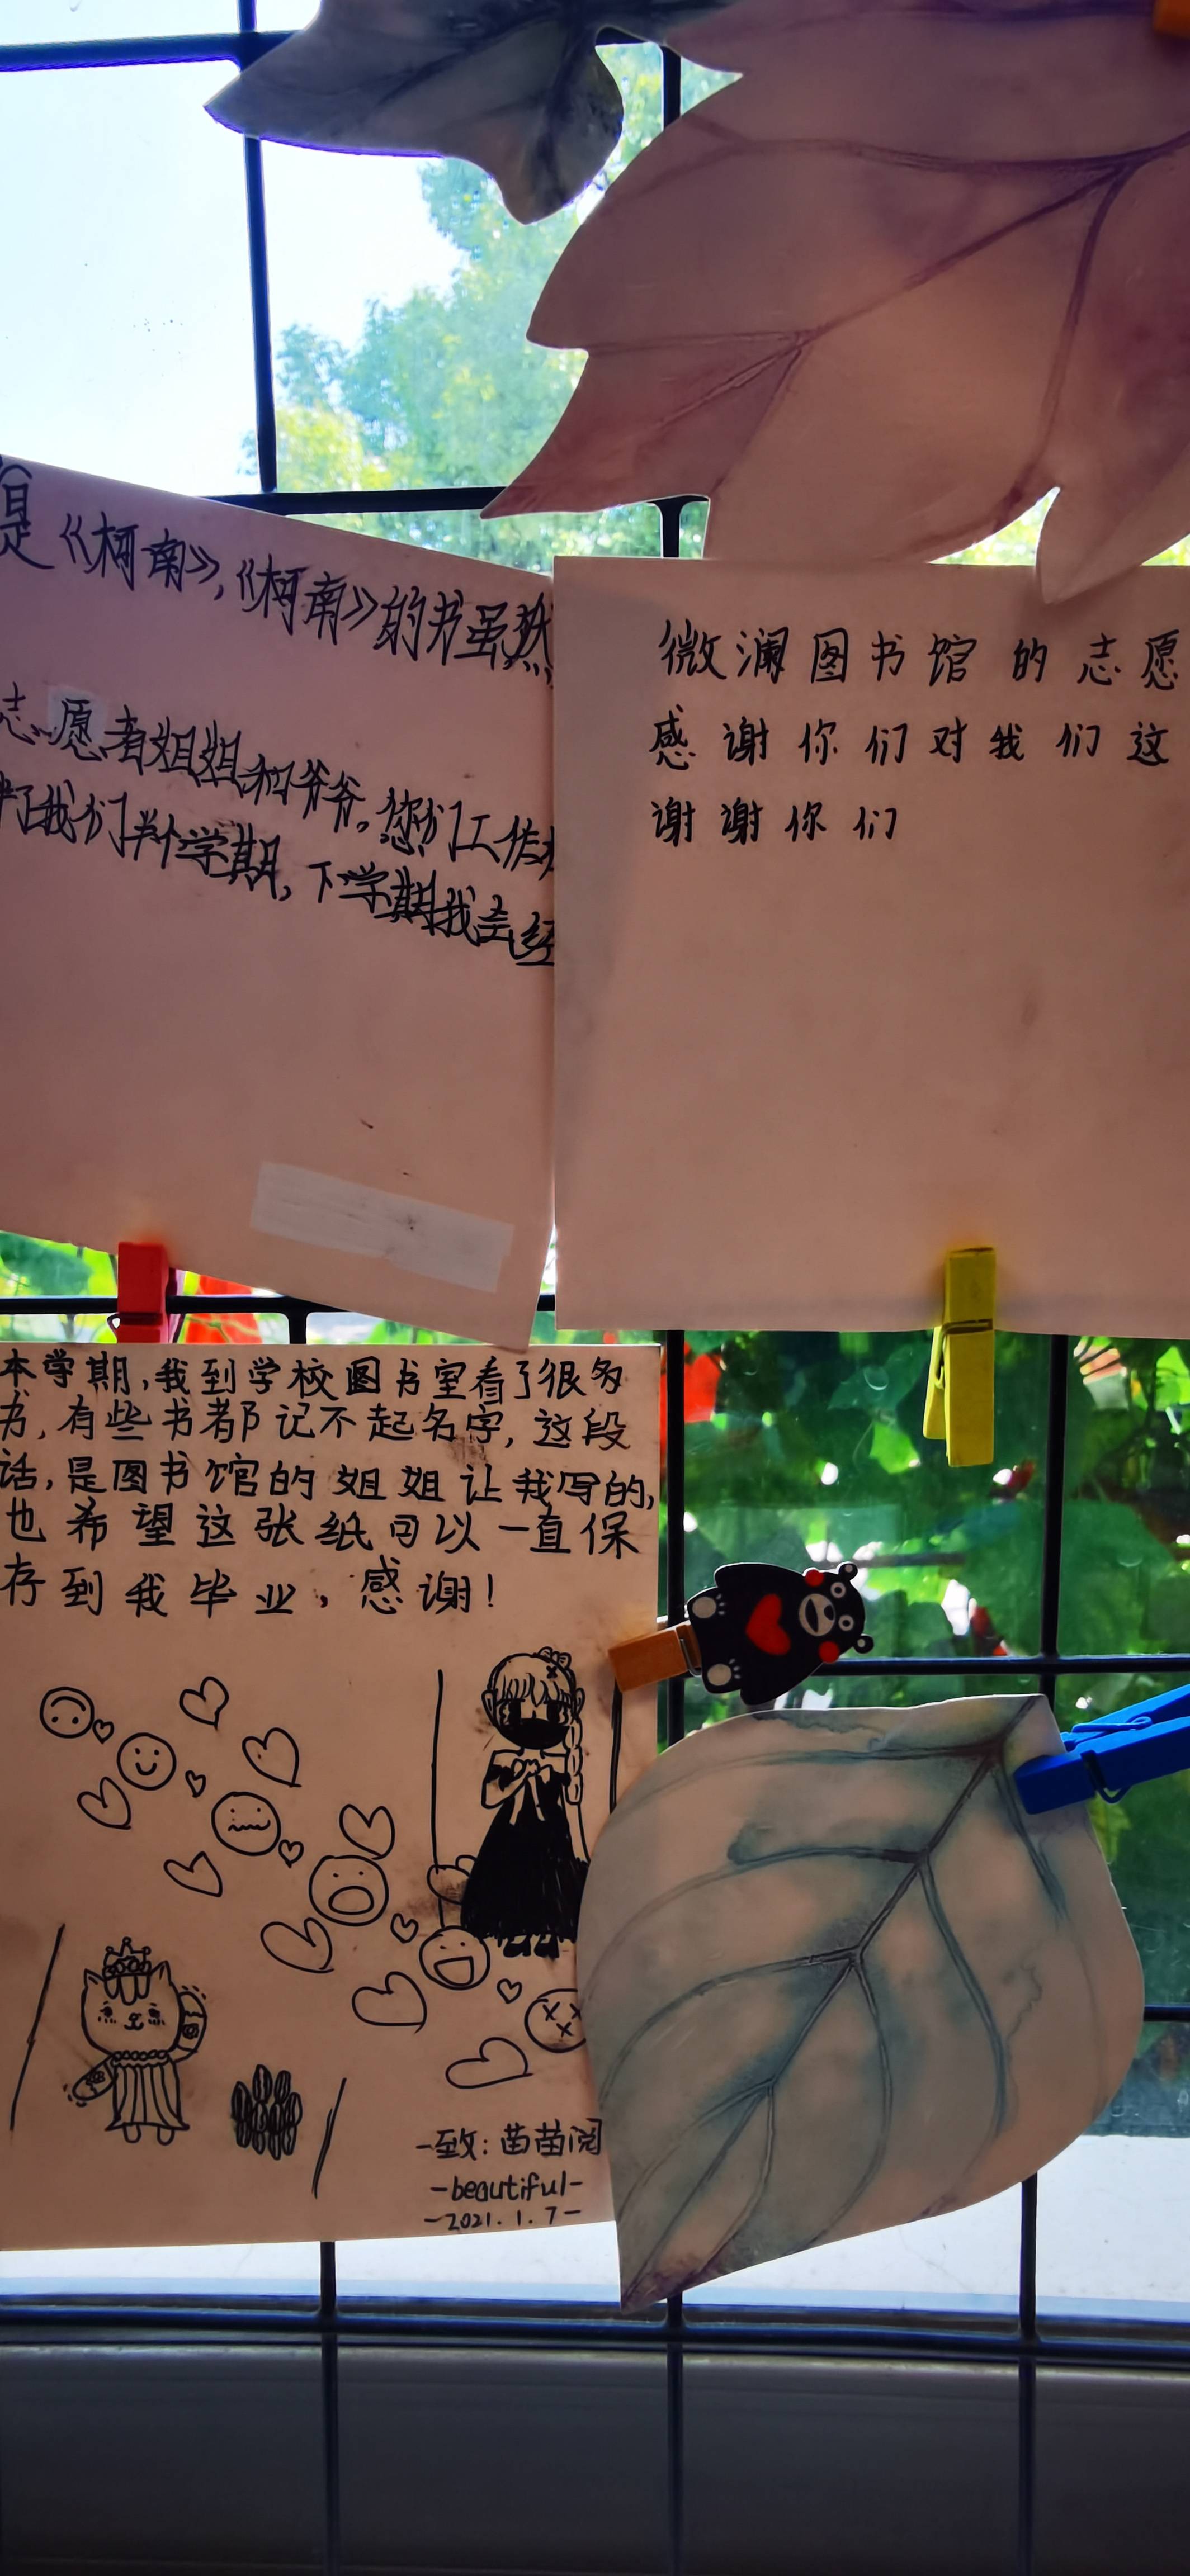 是《柯南》,《柯南》的书虽然
志愿者姐姐和爷爷,您们工作
了我们半个学期,下学期我会经
微澜图书馆的志愿
感谢你们对我们这
谢谢你们
本学期,我到学校图书室看了很多
书,有些书都记不起名字,这段
话,是图书馆的姐姐让我写的,
也希望这张纸可以一直保
存到我毕业,感谢!
-致:苗苗阅
-beautiful-
-2021.1.7-